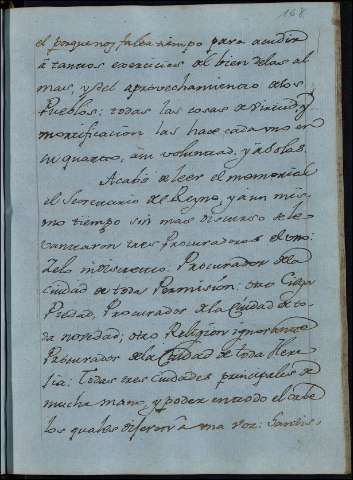 168
el porque nos falta tiempo para acudir
â tantos exercicios del bien de las al
mas, y del aprovechamiento de los
Pueblos: todas las cosas de virtud, y
mortificacion las hace cada uno en
su quarto, â su voluntad, y â solas.
Acabó de leer el memorial
el Secretario de Reyno, y â un mis
mo tiempo sin mas discurso se le
vantaron tres Procuradores el uno:
Zelo indiscreto: Procurador de la
Ciudad de toda Permision: otro Ciega
Piedad, Procurador de la Ciudad de to
da novedad; otro Religion ignorante
Procurador de la Ciudad de toda Here
gia: Todas tres Ciudades principales de
mucha mano, y poder en todo el
los quales dixeron â una voz: